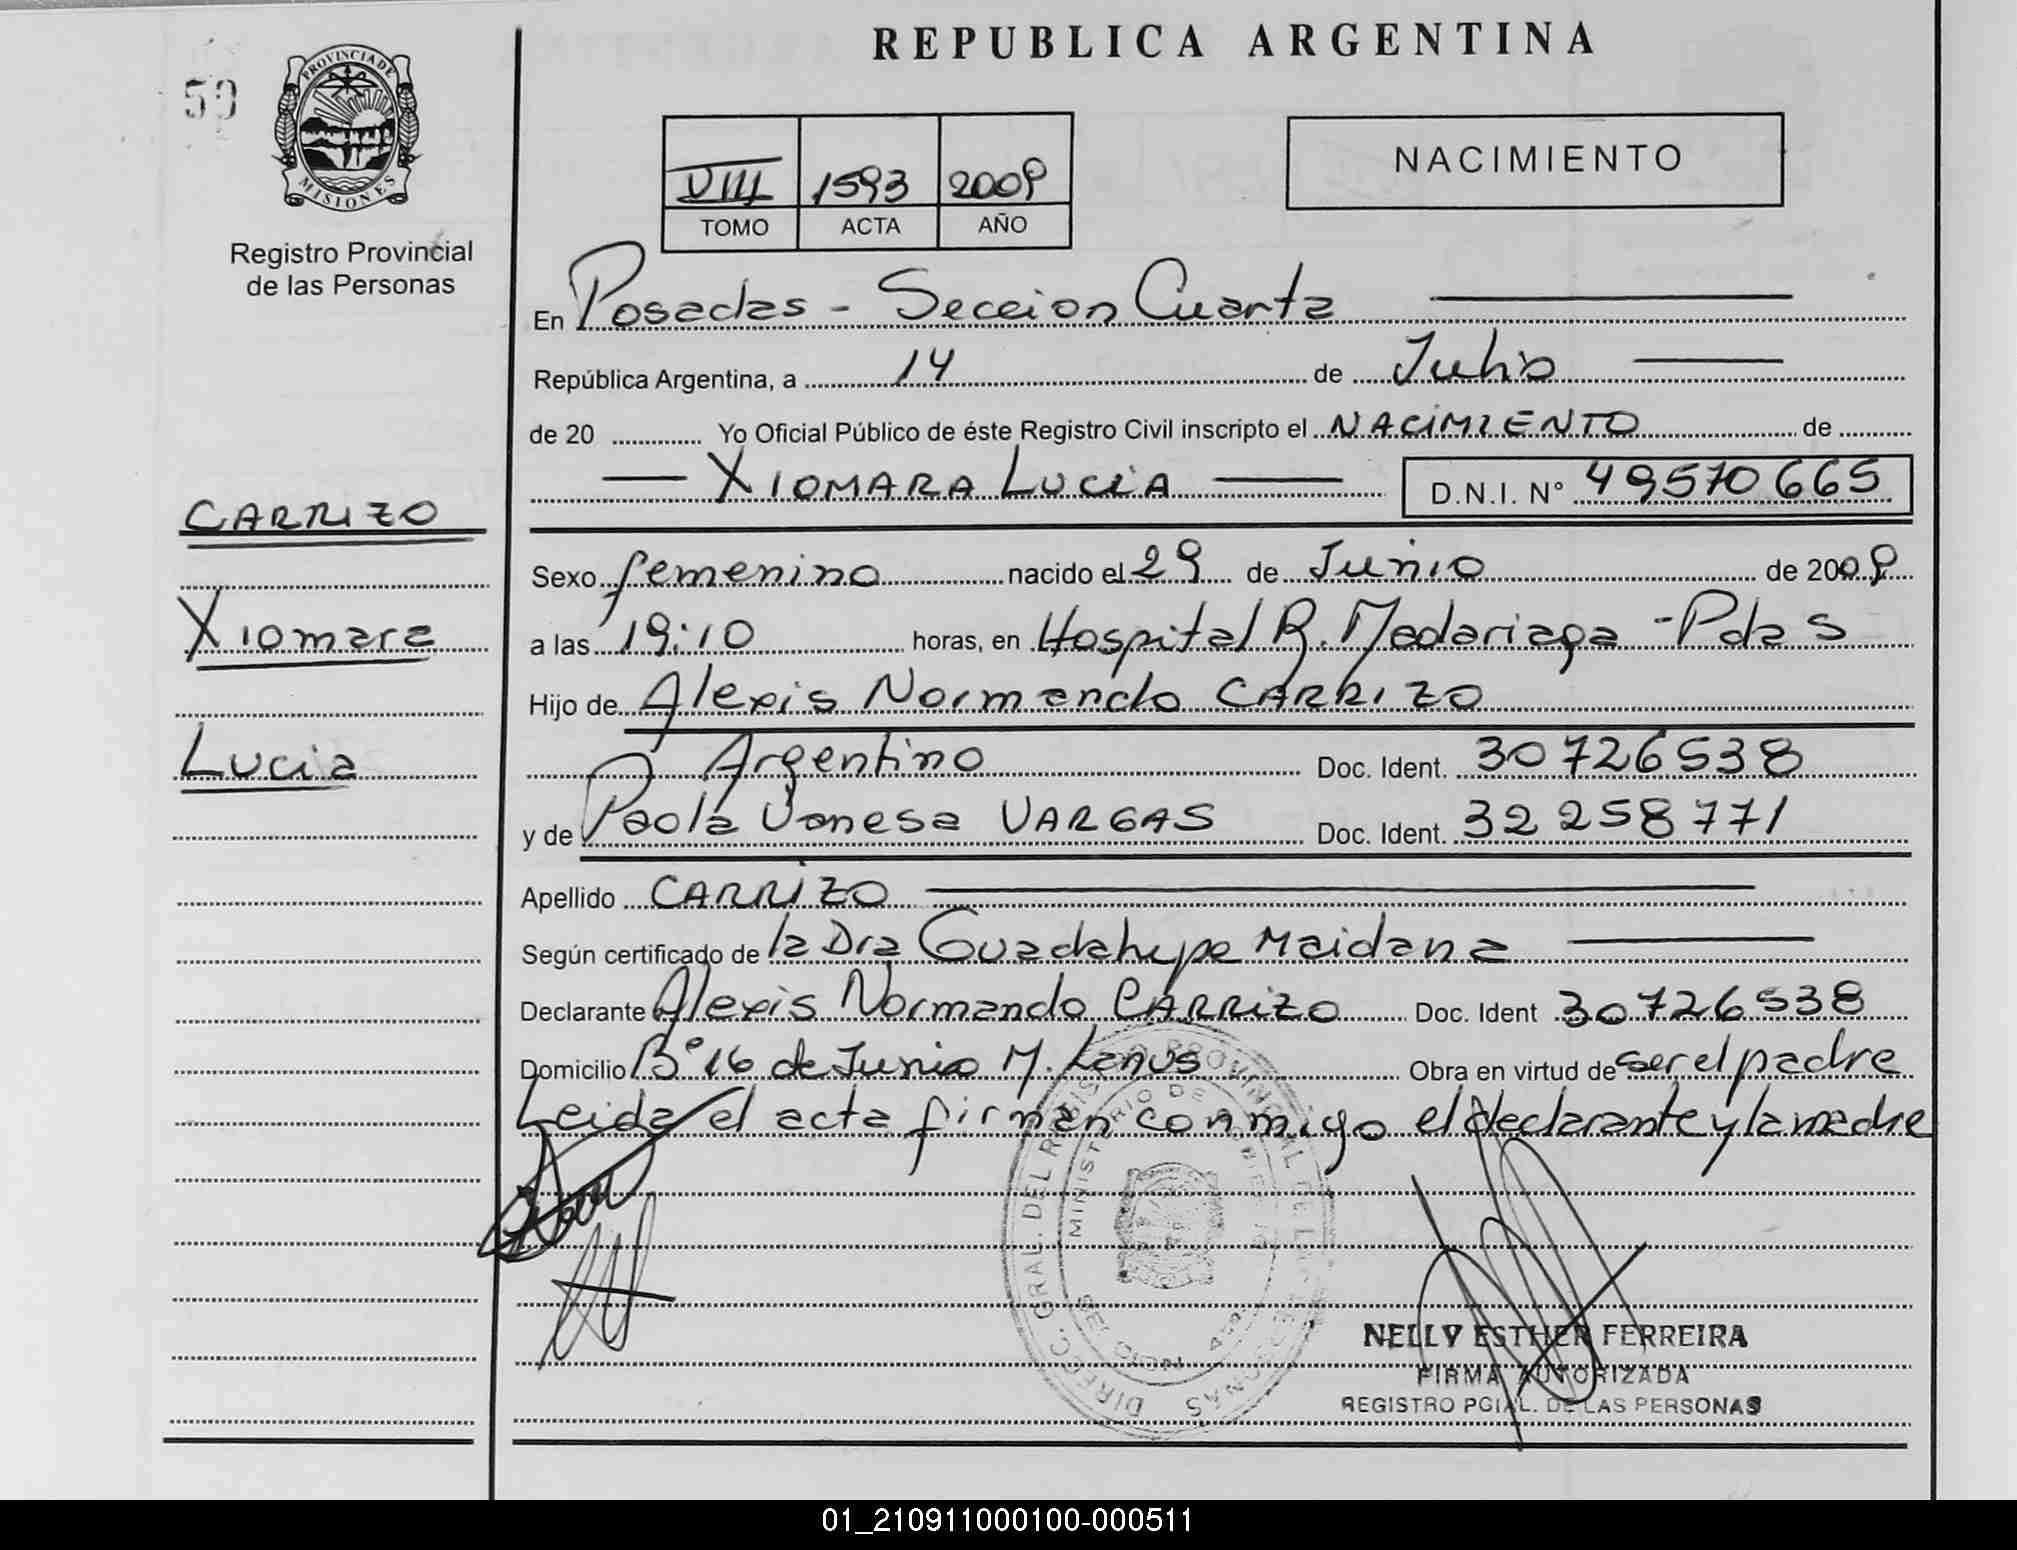 REPUBLICA ARGENTINA
59
PROVINCIA DE
MISIONES
Registro Provincial
de las Personas
VIII 1593 2009
TOMO ACTA AÑO
NACIMIENTO
En Posadas - Seccion Cuarta
República Argentina, a 14 de Julio
de 20 Yo Oficial Público de éste Registro Civil inscripto el NACIMIENTO de
XIOMARA LUCIA D.N.I. N° 49570665
CARRIZO
Xiomara
Lucia
Sexo femenino nacido el 29 de Junio de 2009
a las 19:10 horas, en Hospital R. Madariaga - Pdas
Hijo de Alexis Normando CARRIZO
Argentino Doc. Ident. 30726538
y de Paola Vanesa VARGAS Doc. Ident. 32258771
Apellido CARRIZO
Según certificado de la Dra Guadalupe Maidana
Declarante Alexis Normando CARRIZO Doc. Ident 30726538
Domicilio B° 16 de Junio M. Lanus Obra en virtud de ser el padre
Leida el acta firman conmigo el declarante y la madre
DIRECC. GRAL. DEL REGISTRO PROVINCIAL DE LAS PERSONAS
MINISTERIO DE GOBIERNO
NELLY ESTHER FERREIRA
FIRMA AUTORIZADA
REGISTRO PCIAL. DE LAS PERSONAS
01_210911000100-000511